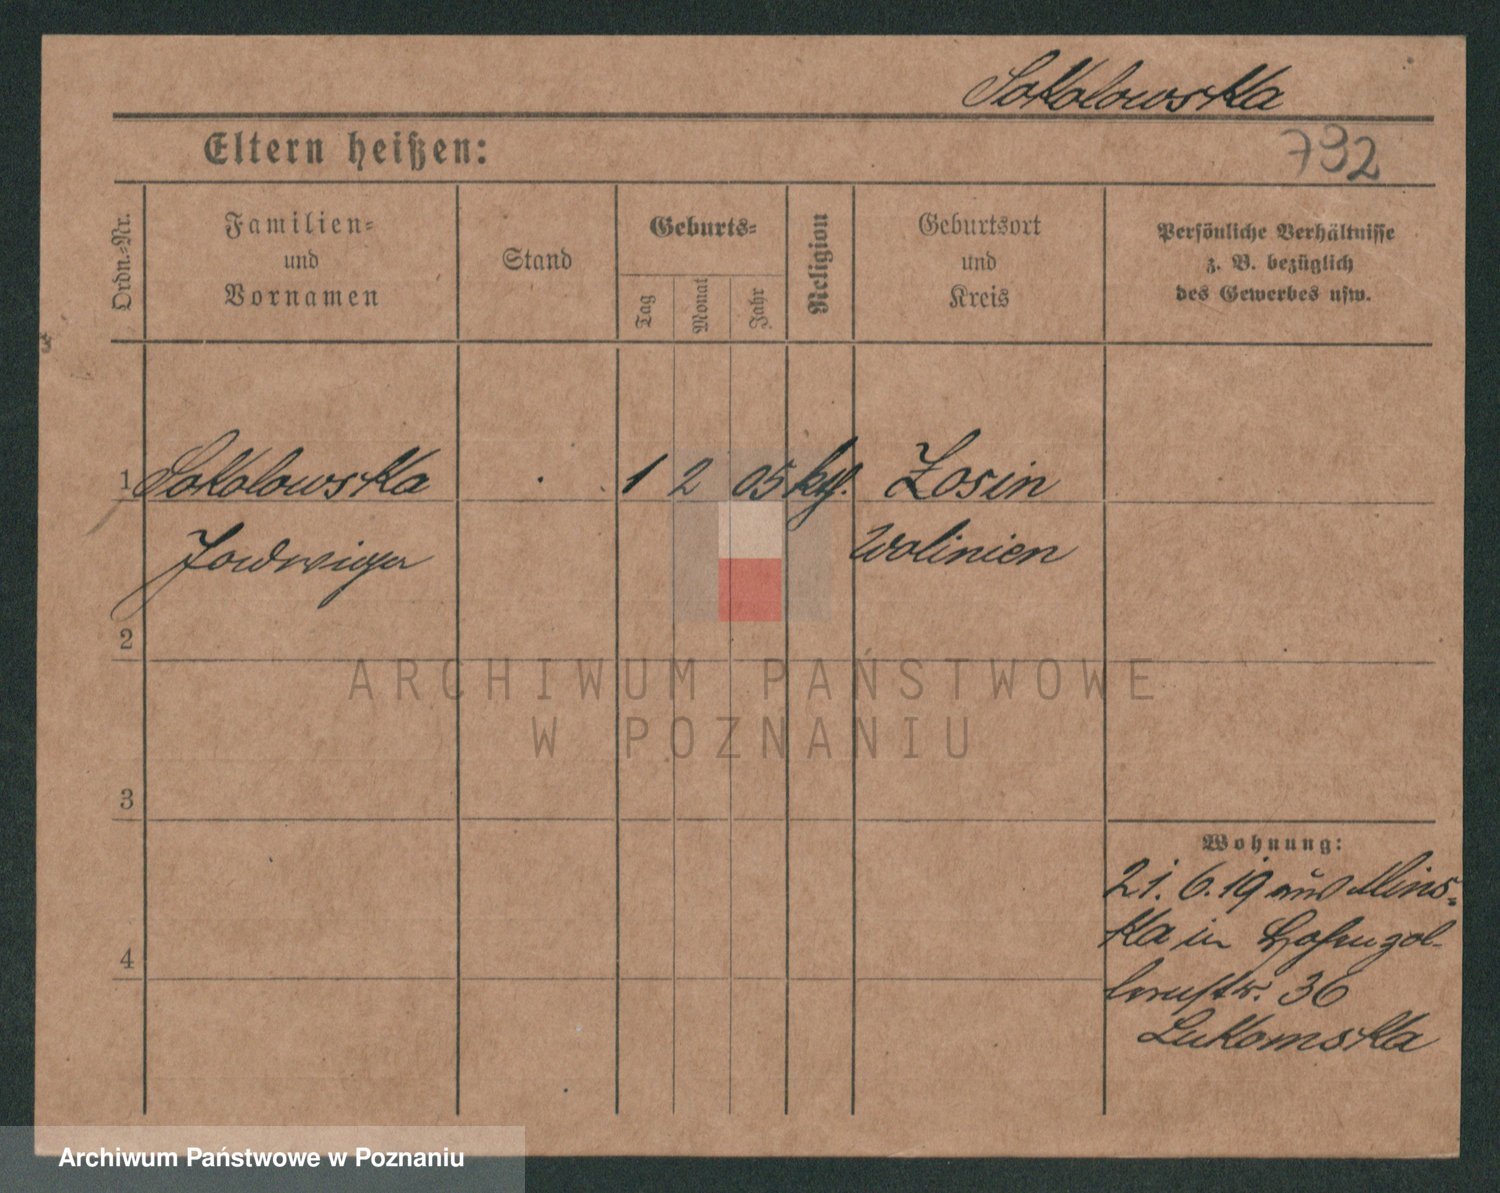 Sokolowska
Eltern heißen:
792
Ordn.-Nr.
Familien-
und
Vornamen
Stand
Geburts-
Tag
Monat
Jahr
Religion
Geburtsort
und
Kreis
Persönliche Verhältnisse
z. B. bezüglich
des Gewerbes usw.
1 Sokolowska 1 2 05 kth. Zosin
Jadwiga Wolinien
2
3
4
Wohnung:
21. 6. 19 aus Mins-
ka in Hohenzol-
lernstr. 36
Lukomska
ARCHIWUM PAŃSTWOWE
W POZNANIU
Archiwum Państwowe w Poznaniu